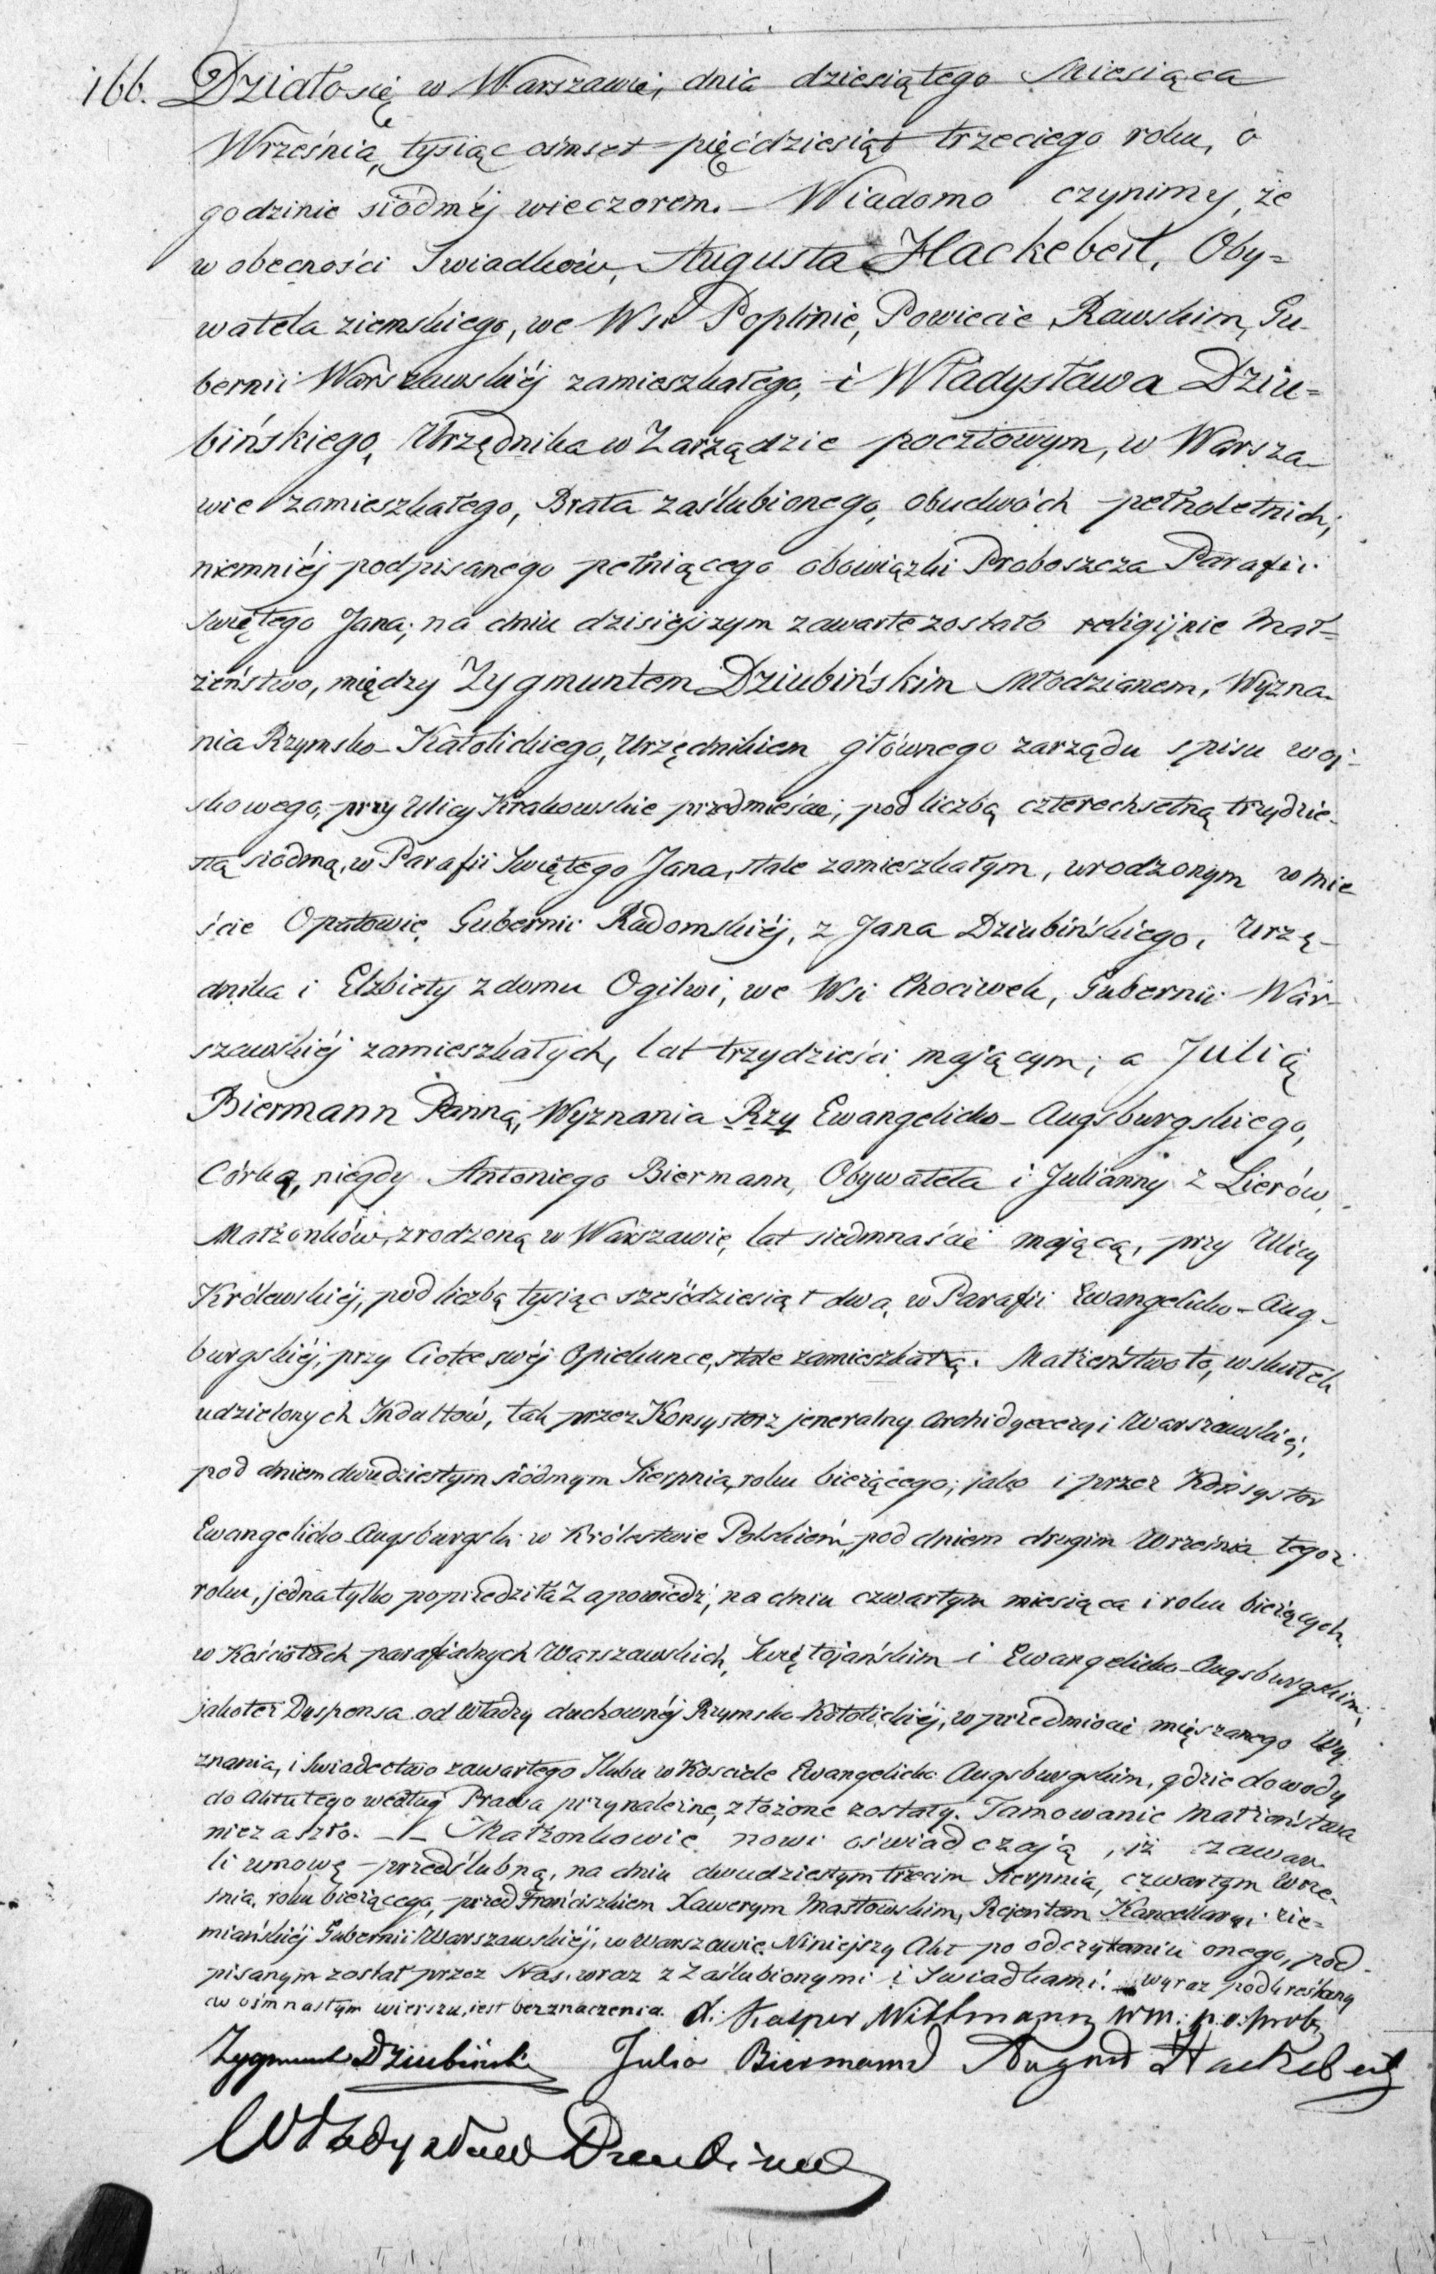 166. Działo się w Warszawie, dnia dziesiątego Miesiąca
Września, tysiąc ośmset pięćdziesiąt trzeciego roku, o
godzinie siódméj wieczorem. – Wiadomo czynimy, że
w obecności Swiadków, Augusta Hackebeil, Oby=
watela ziemskiego, we Wsi Poplinie, Powiecie Rawskim, Gu-
bernii Warszawskiéj zamieszkałego, i Władysława Dziu=
bińskiego, Urzędnika w Zarządzie pocztowym, w Warsza-
wie zamieszkałego, Brata zaślubionego, obudwóch pełnoletnich,
niemniéj podpisanego pełniącego obowiązki Proboszcza Parafii
Swiętego Jana; na dniu dzisiejszym zawarte zostało religijnie Mał=
żeństwo, między Zygmuntem Dziubińskim Młodzianem, Wyzna-
nia Rzymsko-Katolickiego, Urzędnikiem głównego zarządu spisu woj-
skowego, przy Ulicy Krakowskie przedmieście, pod liczbą czterechsetną trzydzie-
stą siódmą, w Parafii Swiętego Jana, stale zamieszkałym, urodzonym w mie
ście Opatowie Gubernii Radomskiéj, z Jana Dziubińskiego, Urzę-
dnika i Elżbiety z domu Ogilwi, we Wsi Chociwek, Gubernii War-
szawskiéj zamieszkałych, lat trzydzieści mającym; a Julią
Biermann Panną, Wyznania Rzy Ewangelicko-Augsburgskiego,
Córką, niegdy Antoniego Biermann, Obywatela i Julianny z Lierów,
Małżonków, zrodzoną w Warszawie, lat siedmnaście mającą, przy Ulicy
Królewskiéj, pod liczbą tysiąc sześćdziesiąt dwa, w Parafii Ewangelicko-Aug-
burgskiéj, przy Ciotce swéj Opiekunce, stale zamieszkałą. Małżeństwo to, w skutek
udzielonych Indultów, tak przez Konsystorz jeneralny Archidyecezyi Warszawskiéj,
pod dniem dwudziestym siódmym Sierpnia, roku bieżącego; jako i przez Konsystor
Ewangelicko Augsburgski w Królestwie Polskiém, pod dniem drugim Września tegoż
roku, jedna tylko poprzedziła Zapowiedź, na dniu czwartym miesiąca i roku bieżących
w Kościołach parafialnych Warszawskich, Swiętojańskim i Ewangelicko-Augsburgskim;
jakoteż Dyspensa od Władzy duchownéj Rzymsko Katolickiéj, w przedmiocie mięszanego Wy-
znania, i Swiadectwo zawartego Slubu w Kosciele Ewangelicko Augsburgskim, gdzie dowody
do Aktu tego według Prawa przynależne, złożone zostały. Tamowanie Małżeństwa
nie zaszło. – – Małżonkowie nowi oświadczają, iż zawar-
li umowę przedślubną, na dniu dwudziestym trzecim Sierpnia, czwartym Wrze-
śnia, roku bieżącego, przed Franciszkiem Xawerym Masłowskim, Rejentem Kancellaryi zie=
miańskiéj Gubernii Warszawskiéj, w Warszawie. Niniejszy Akt po odczytaniu onego, pod-
pisanym został przez Nas, wraz z Zaślubionymi i Swiadkami. wyraz podkreślony
w ośmnastym wierszu, jest bez znaczenia. X. Kasper Wittmann Wm: p. o. prob.
Zygmunt Dziubiński Julia Biermann August Hackebeil
Władysław Dziubiński